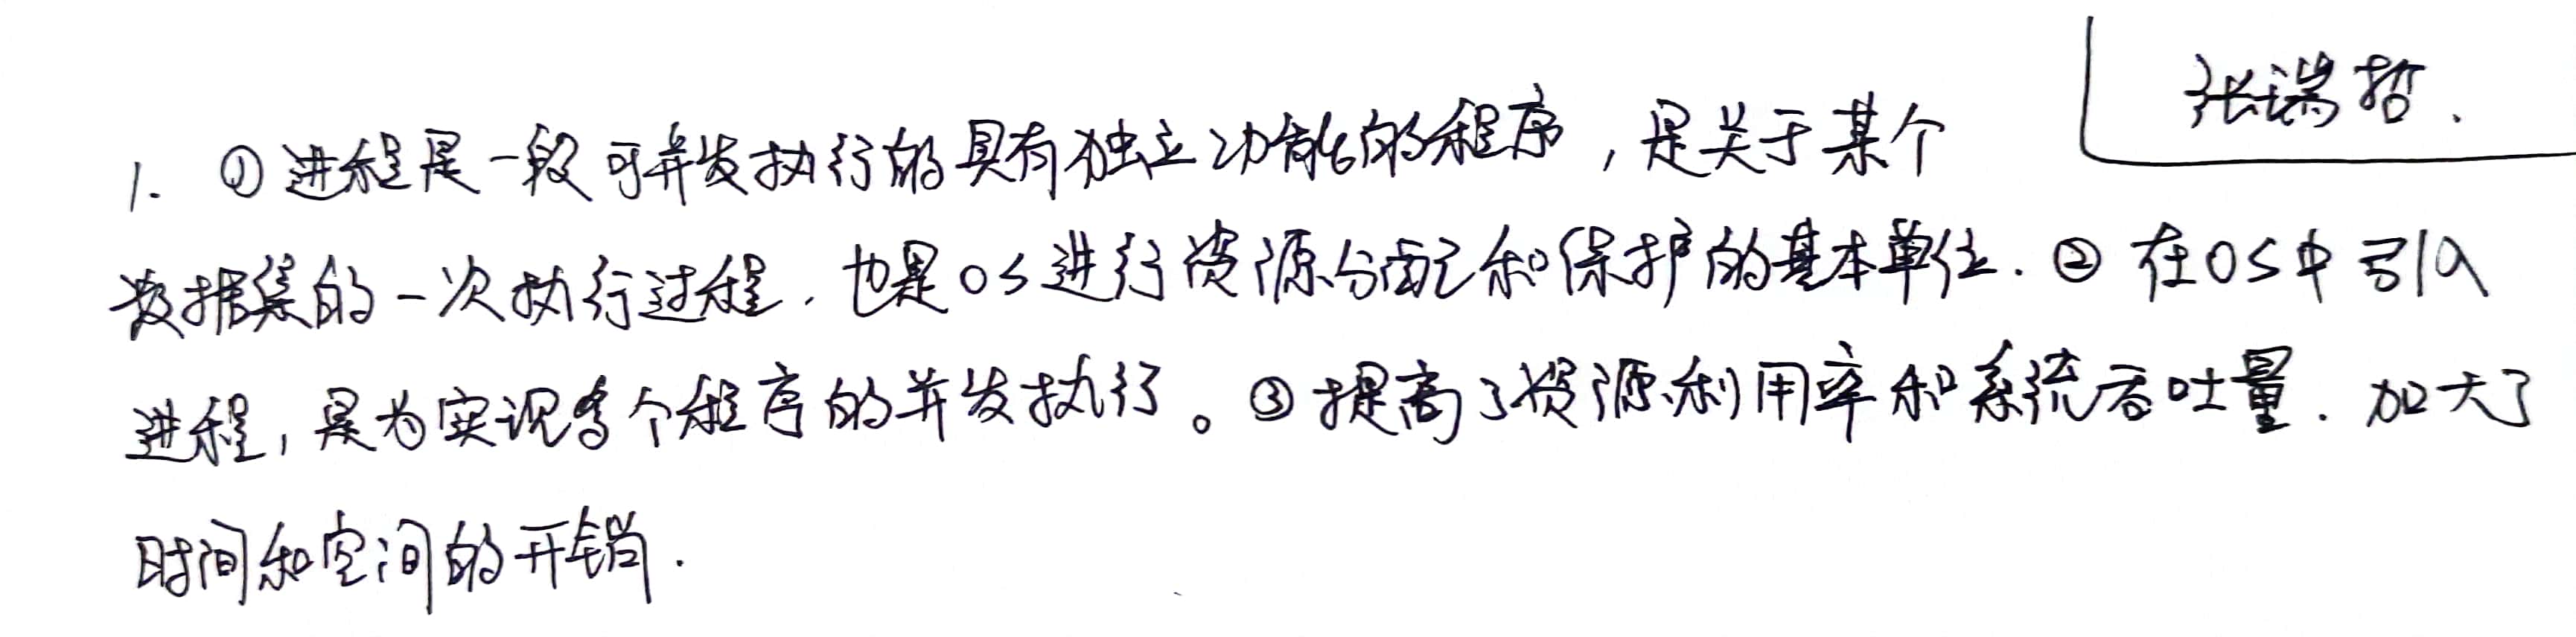 张瑞哲.
1. ①进程是一段可并发执行的具有独立功能的程序，是关于某个
数据集的一次执行过程.也是OS进行资源分配和保护的基本单位.②在OS中引入
进程，是为实现多个程序的并发执行。③提高了资源利用率和系统吞吐量.加大了
时间和空间的开销.